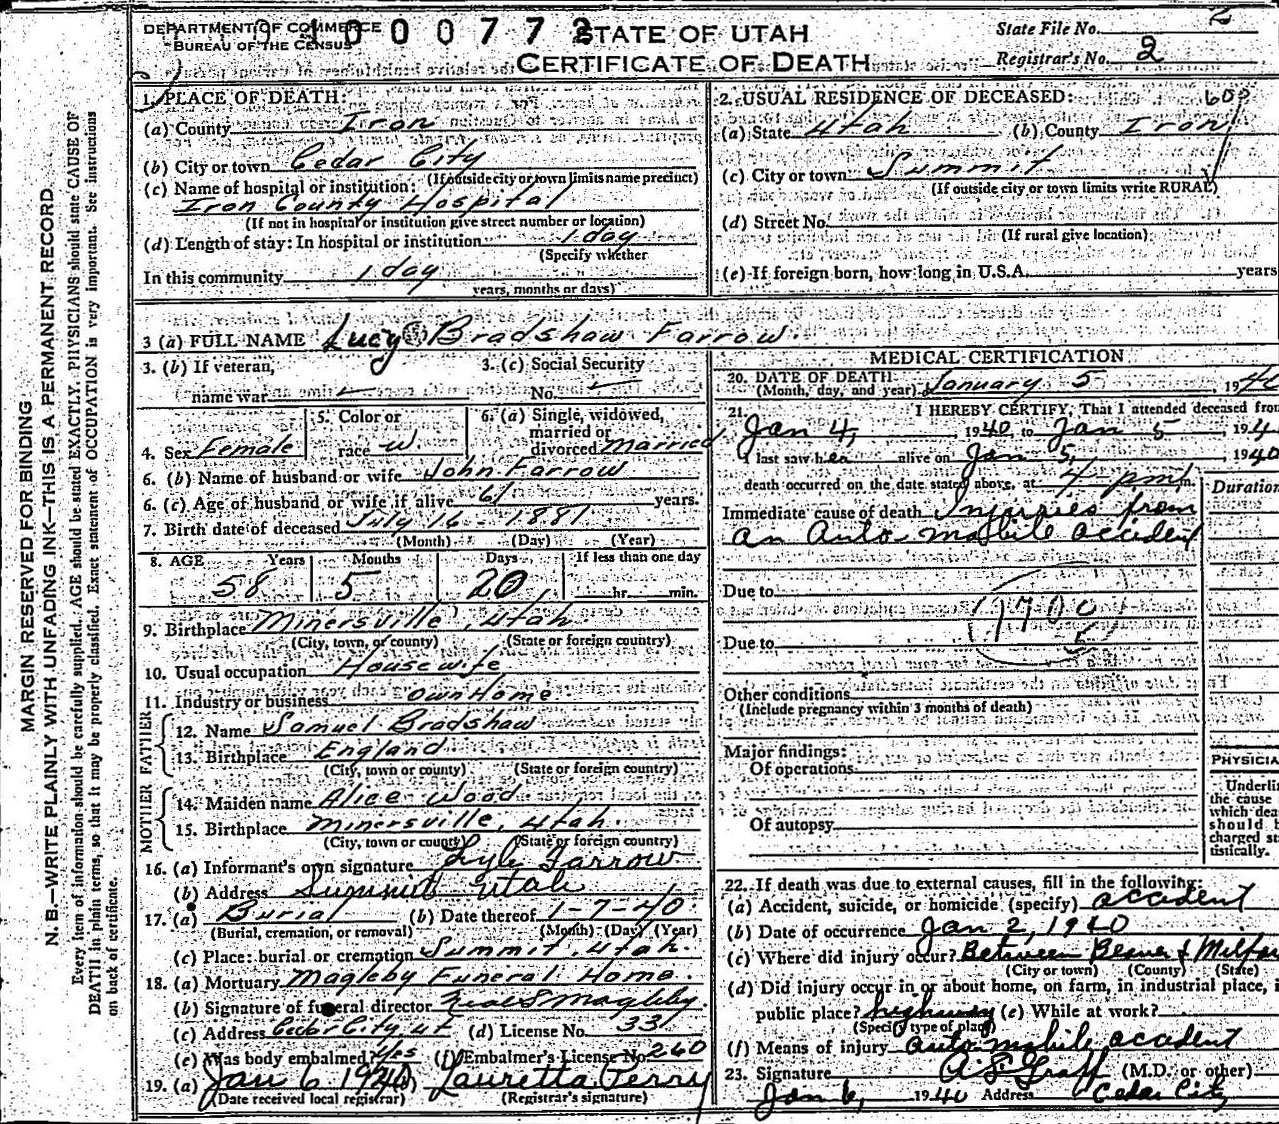 DEPARTMENT OF COMMERCE
BUREAU OF THE CENSUS
100772
STATE OF UTAH
CERTIFICATE OF DEATH
State File No. 2
Registrar's No. 2
MARGIN RESERVED FOR BINDING
N. B.—WRITE PLAINLY WITH UNFADING INK—THIS IS A PERMANENT RECORD
Every item of information should be carefully supplied. AGE should be stated EXACTLY. PHYSICIANS should state CAUSE OF
DEATH in plain terms, so that it may be properly classified. Exact statement of OCCUPATION is very important. See instructions
on back of certificate.
1. PLACE OF DEATH:
(a) County Iron
(b) City or town Cedar City
(If outside city or town limits name precinct)
(c) Name of hospital or institution:
Iron County Hospital
(If not in hospital or institution give street number or location)
(d) Length of stay: In hospital or institution 1 day
(Specify whether
In this community 1 day
years, months or days)
2. USUAL RESIDENCE OF DECEASED:
(a) State Utah (b) County Iron
(c) City or town Summit
(If outside city or town limits write RURAL)
(d) Street No.
(If rural give location)
(e) If foreign born, how long in U.S.A. years
3 (a) FULL NAME Lucy Bradshaw Farrow.
3. (b) If veteran,
name war
3. (c) Social Security
No.
4. Sex Female
5. Color or
race W
6. (a) Single, widowed,
married or
divorced Married
6. (b) Name of husband or wife John Farrow
6. (c) Age of husband or wife if alive 61 years.
7. Birth date of deceased July 16 - 1881
(Month) (Day) (Year)
8. AGE Years Months Days If less than one day
58 5 20 hr. min.
9. Birthplace Minersville, Utah.
(City, town, or county) (State or foreign country)
10. Usual occupation Housewife
11. Industry or business own Home
FATHER
12. Name Samuel Bradshaw
13. Birthplace England
(City, town or county) (State or foreign country)
MOTHER
14. Maiden name Alice Wood
15. Birthplace Minersville, Utah.
(City, town or county) (State or foreign country)
16. (a) Informant's own signature Lyle Farrow
(b) Address Summit Utah
17. (a) Burial (b) Date thereof 1-7-40.
(Burial, cremation, or removal) (Month) (Day) (Year)
(c) Place: burial or cremation Summit, Utah.
18. (a) Mortuary Magleby Funeral Home.
(b) Signature of funeral director Neal S Magleby.
(c) Address Cedar City ut (d) License No. 331
(e) Was body embalmed? Yes (f) Embalmer's License No. 260
19. (a) Jan 6 1940 Lauretta Perry
(Date received local registrar) (Registrar's signature)
MEDICAL CERTIFICATION
20. DATE OF DEATH
(Month, day, and year) January 5 1940
21. I HEREBY CERTIFY, That I attended deceased from
Jan 4, 1940, to Jan 5 194
I last saw her alive on Jan 5, 1940
death occurred on the date stated above, at 7 pm m.
Duration
Immediate cause of death Injuries from
an Auto mobile accident
Due to
1700
Due to
Other conditions
(Include pregnancy within 3 months of death)
Major findings:
Of operations
Of autopsy
PHYSICIA
Underli
the cause
which dea
should b
charged st
tistically.
22. If death was due to external causes, fill in the following:
(a) Accident, suicide, or homicide (specify) accident
(b) Date of occurrence Jan 2, 1940
(c) Where did injury occur? Between Beaver & Milfor
(City or town) (County) (State)
(d) Did injury occur in or about home, on farm, in industrial place, i
public place? highway (e) While at work?
(Specify type of place)
(f) Means of injury auto mobile accident
23. Signature A. F. Graff (M.D. or other)
Jan 6, 1940 Address Cedar City